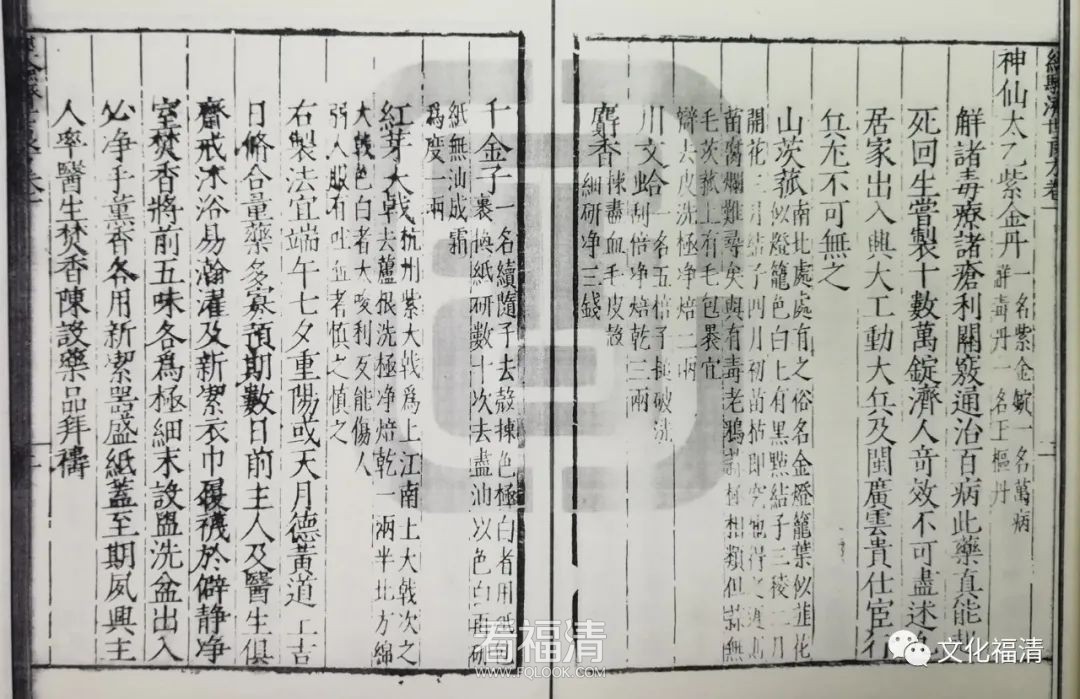 經驗濟世良方卷一
神仙太乙紫金丹一名紫金錠一名萬病
解毒丹一名玉樞丹
解諸毒療諸瘡利關竅通治百病此藥真能起
死回生嘗製十數萬錠濟人奇效不可盡述凡
居家出入興大工動大兵及閩廣雲貴仕宦行
兵尤不可無之
山茨菰南北處處有之俗名金燈籠葉似韭花
似燈籠色白上有黑點結子三稜二月
開花三月結子四月初苗枯即空地得之遲則
苗腐爛難尋矣與有毒老鴉蒜極相類但蒜無
毛茨菰上有毛包裹宜
辯去皮洗極净焙二兩
川文蛤一名五棓子搥破洗
刮倍净焙乾三兩
麝香揀盡血毛皮殼
細研净三錢
千金子一名續隨子去殼揀色極白者用紙包
裹換紙研數十次去盡油以色白再研
紙無油成霜
爲度一兩
紅芽大戟杭州紫大戟爲上江南土大戟次之
去蘆根洗極净焙乾一兩半北方綿
大戟色白者大峻利反能傷人
弱人服有吐血者慎之慎之
右製法宜端午七夕重陽或天月德黃道上吉
日脩合量藥多寡預期數日前主人及醫生俱
齋戒沐浴易澣濯及新潔衣巾履襪於僻静净
室焚香將前五味各爲極細末設盥洗盆出入
必净手薰香各用新潔器盛紙蓋至期夙興主
人率醫生焚香陳設藥品拜禱
看福清
WWW.FQLOOK.COM
文化福清